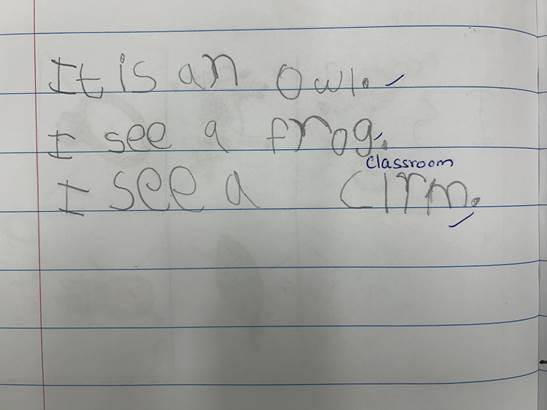 It is an owl.
I see a frog.
Classroom
I see a Clrm.